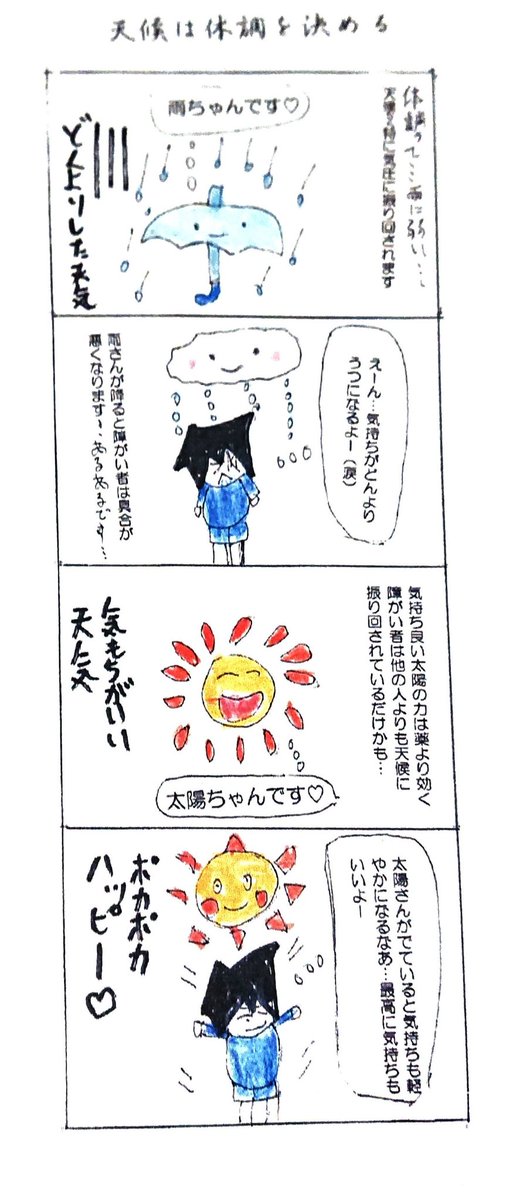 天候は体調を決める
体調って…雨に弱い…
天候や特に気圧に振り回されます
雨ちゃんです♡
どんよりした天気
えーん…気持ちがどんより
うつになるよー（涙）
雨さんが降ると障がい者は具合が
悪くなります…あるあるです…
気持ち良い太陽の力は薬より効く
障がい者は他の人よりも天候に
振り回されているだけかも…
気もちがいい
天気
太陽ちゃんです♡
太陽さんがでていると気持ちも軽
やかになるなあ…最高に気持ちも
いいよー
ポカポカ
ハッピー♡